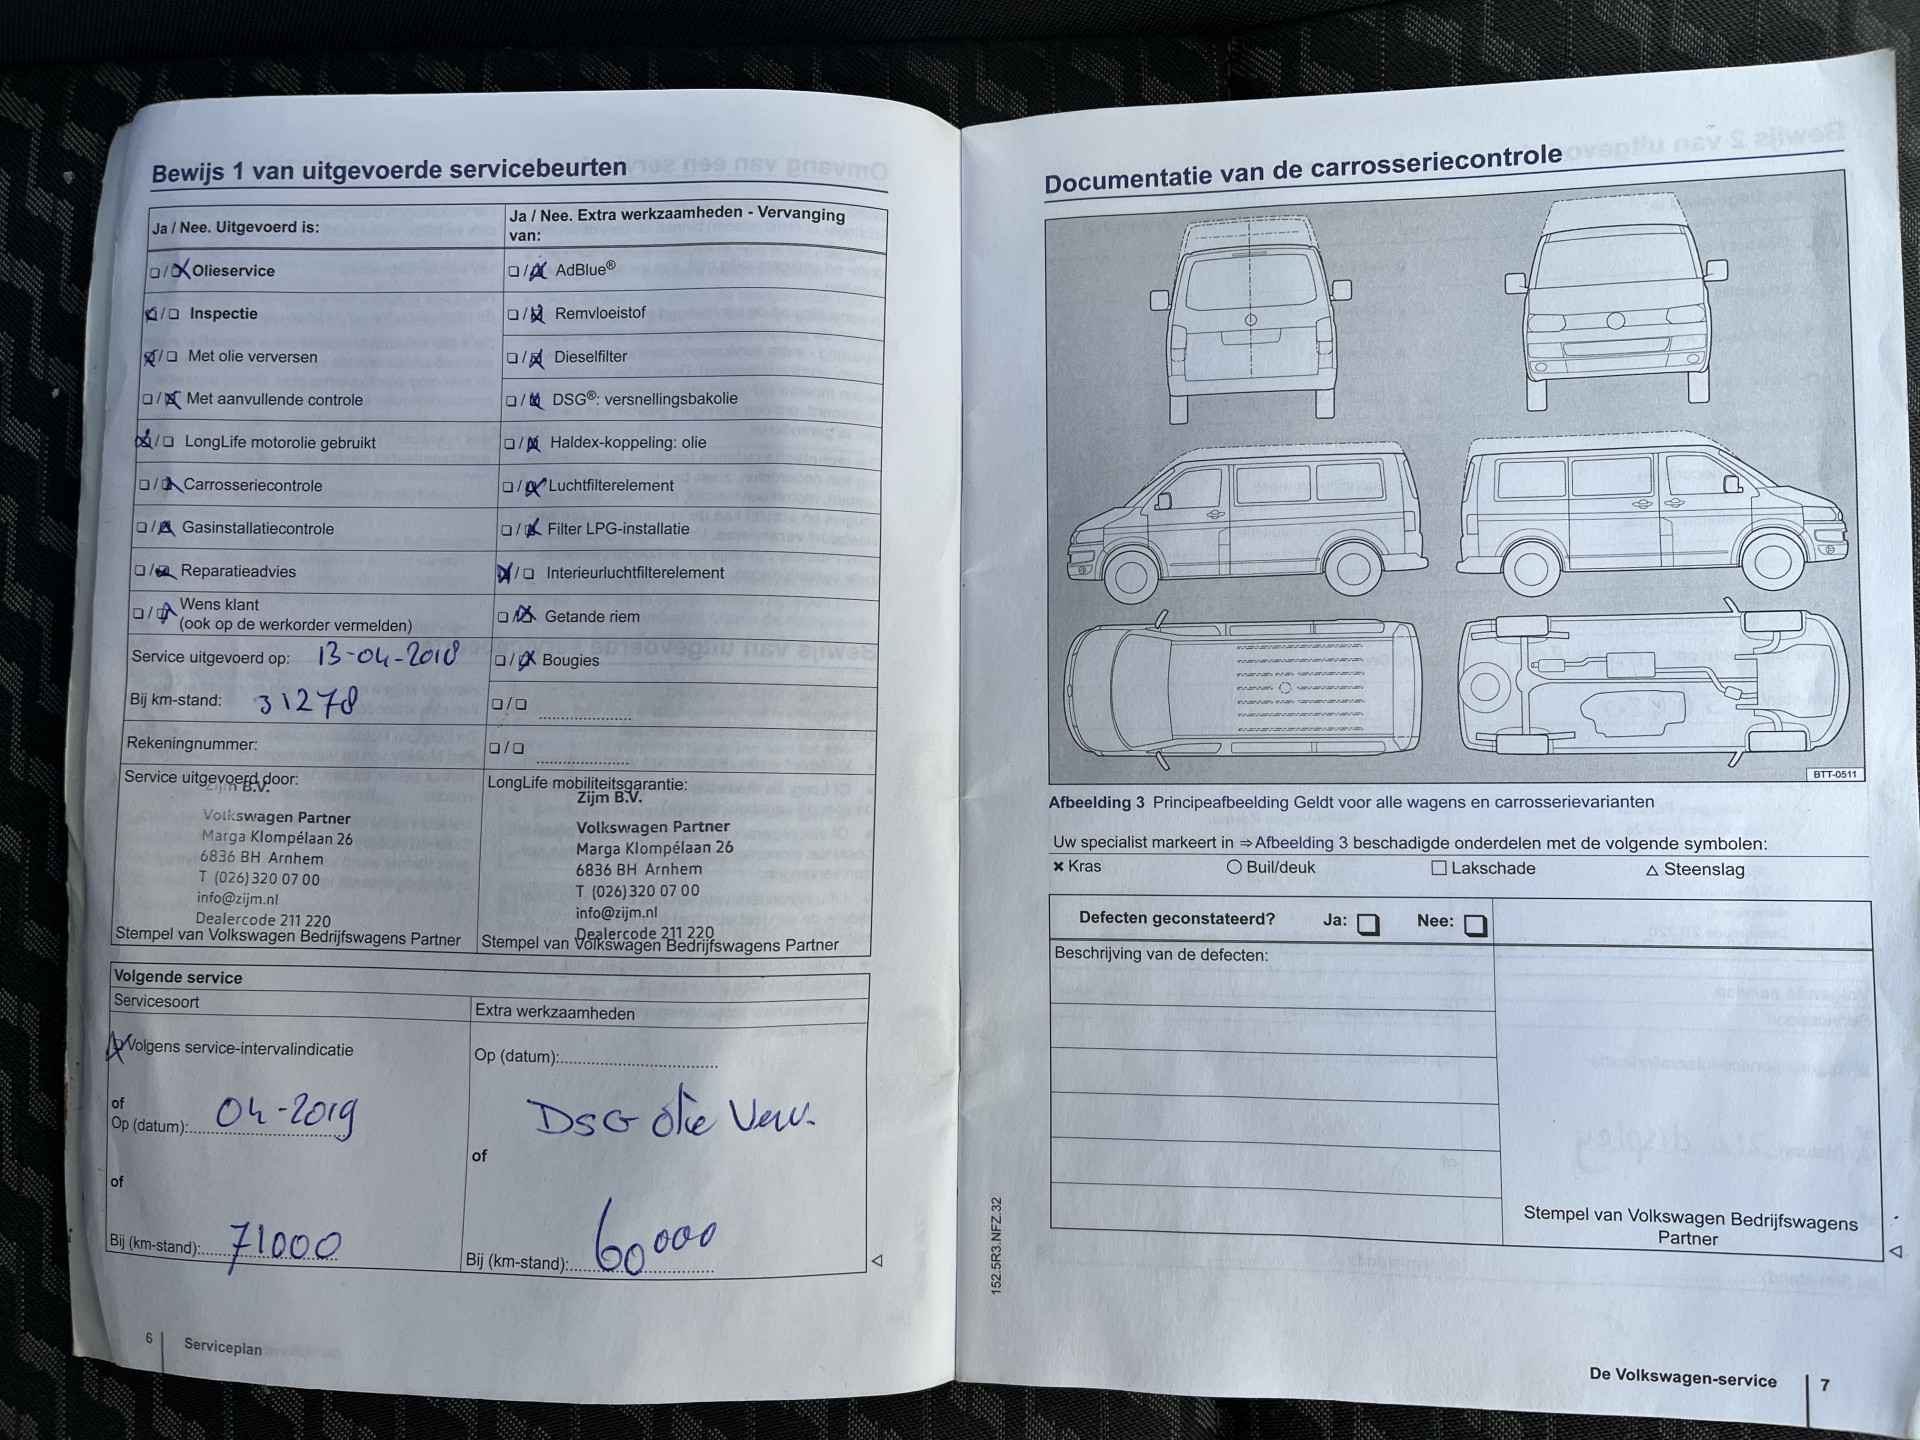 Bewijs 1 van uitgevoerde servicebeurten
Ja / Nee. Uitgevoerd is:
☐/☒ Olieservice
☒/☐ Inspectie
☒/☐ Met olie verversen
☐/☒ Met aanvullende controle
☒/☐ LongLife motorolie gebruikt
☐/☒ Carrosseriecontrole
☐/☒ Gasinstallatiecontrole
☐/☒ Reparatieadvies
☐/☒ Wens klant
(ook op de werkorder vermelden)
Service uitgevoerd op: 13-04-2018
Bij km-stand: 31278
Rekeningnummer:
Service uitgevoerd door:
Zijm B.V.
Volkswagen Partner
Marga Klompélaan 26
6836 BH Arnhem
T (026) 320 07 00
info@zijm.nl
Dealercode 211 220
Stempel van Volkswagen Bedrijfswagens Partner
Ja / Nee. Extra werkzaamheden - Vervanging
van:
☐/☒ AdBlue®
☐/☒ Remvloeistof
☐/☒ Dieselfilter
☐/☒ DSG®: versnellingsbakolie
☐/☒ Haldex-koppeling: olie
☐/☒ Luchtfilterelement
☐/☒ Filter LPG-installatie
☒/☐ Interieurluchtfilterelement
☐/☒ Getande riem
☐/☒ Bougies
☐/☐ ....................
☐/☐ ....................
LongLife mobiliteitsgarantie:
Zijm B.V.
Volkswagen Partner
Marga Klompélaan 26
6836 BH Arnhem
T (026) 320 07 00
info@zijm.nl
Dealercode 211 220
Stempel van Volkswagen Bedrijfswagens Partner
Volgende service
Servicesoort
☒ Volgens service-intervalindicatie
of
Op (datum): 04-2019
of
Bij (km-stand): 71000
Extra werkzaamheden
Op (datum):
DSG olie Verv.
of
Bij (km-stand): 60000
6 Serviceplan
Documentatie van de carrosseriecontrole
BTT-0511
Afbeelding 3 Principeafbeelding Geldt voor alle wagens en carrosserievarianten
Uw specialist markeert in ⇒ Afbeelding 3 beschadigde onderdelen met de volgende symbolen:
✖ Kras ○ Buil/deuk □ Lakschade △ Steenslag
Defecten geconstateerd? Ja: ☐ Nee: ☐
Beschrijving van de defecten:
Stempel van Volkswagen Bedrijfswagens
Partner
152.5R3.NFZ.32
De Volkswagen-service 7